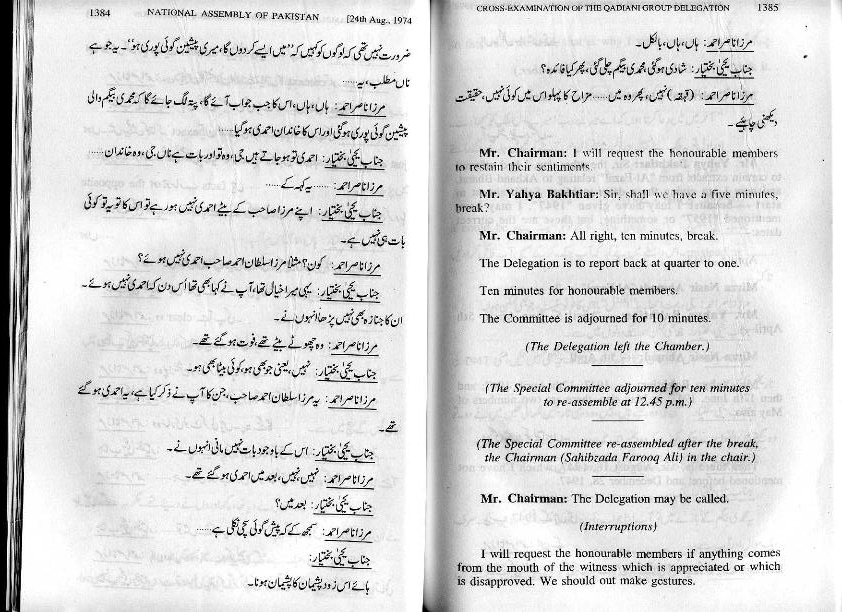 1384 NATIONAL ASSEMBLY OF PAKISTAN [24th Aug., 1974
ضرورت نہیں تھی کہ لوگوں کو کہیں کہ "میں ایسے کردوں گا، میری پیشین گوئی پوری ہو"۔ یہ جو ہے
ناں مطلب، یہ......
مرزا ناصر احمد: ہاں، ہاں، اس کا جب جواب آئے گا، پتہ لگ جائے گا کہ محمدی بیگم والی
پیشین گوئی پوری ہوگئی اور اس کا خاندان احمدی ہوگیا......
جناب یحییٰ بختیار: احمدی تو ہو جاتے ہیں جی، وہ تو اور بات ہے ناں جی، وہ خاندان......
مرزا ناصر احمد: ...... یہ کہہ کے ......
جناب یحییٰ بختیار: اپنے مرزا صاحب کے بیٹے احمدی نہیں ہو رہے تو اس کا تو یہ تو کوئی
بات ہی نہیں ہے۔
مرزا ناصر احمد: کون؟ مثلاً مرزا سلطان احمد صاحب احمدی نہیں ہوئے؟
جناب یحییٰ بختیار: یہی میرا خیال تھا، آپ نے کہا بھی تھا اُس دن کہ احمدی نہیں ہوئے۔
ان کا جنازہ بھی نہیں پڑھا انہوں نے۔
مرزا ناصر احمد: وہ چھوٹے بیٹے تھے، فوت ہوگئے تھے۔
جناب یحییٰ بختیار: نہیں، یعنی جو بھی ہو، کوئی بیٹا بھی ہو۔
مرزا ناصر احمد: یہ مرزا سلطان احمد صاحب، جن کا آپ نے ذکر کیا ہے، یہ احمدی ہوگئے
تھے۔
جناب یحییٰ بختیار: اس کے باوجود بات نہیں مانی انہوں نے۔
مرزا ناصر احمد: نہیں نہیں، بعد میں احمدی ہوگئے تھے۔
جناب یحییٰ بختیار: بعد میں؟
مرزا ناصر احمد: سمجھ کے کہ پیش گوئی سچی نکلی ہے......
جناب یحییٰ بختیار:
ہائے اس زود پشیماں کا پشیماں ہونا۔
CROSS-EXAMINATION OF THE QADIANI GROUP DELEGATION 1385
مرزا ناصر احمد: ہاں، ہاں، بالکل۔
جناب یحییٰ بختیار: شادی ہوگئی محمدی بیگم چلی گئی، پھر کیا فائدہ؟
مرزا ناصر احمد: (قہقہہ) نہیں، پھر وہ میں ...... مزاح کا پہلو اس میں کوئی نہیں، حقیقت
دیکھنی چاہیئے۔
Mr. Chairman: I will request the honourable members
to restain their sentiments
Mr. Yahya Bakhtiar: Sir, shall we have a five minutes,
break?
Mr. Chairman: All right, ten minutes, break.
The Delegation is to report back at quarter to one.
Ten minutes for honourable members.
The Committee is adjourned for 10 minutes.
(The Delegation left the Chamber.)
(The Special Committee adjourned for ten minutes
to re-assemble at 12.45 p.m.)
(The Special Committee re-assembled after the break,
the Chairman (Sahibzada Farooq Ali) in the chair.)
Mr. Chairman: The Delegation may be called.
(Interruptions)
I will request the honourable members if anything comes
from the mouth of the witness which is appreciated or which
is disapproved. We should out make gestures.